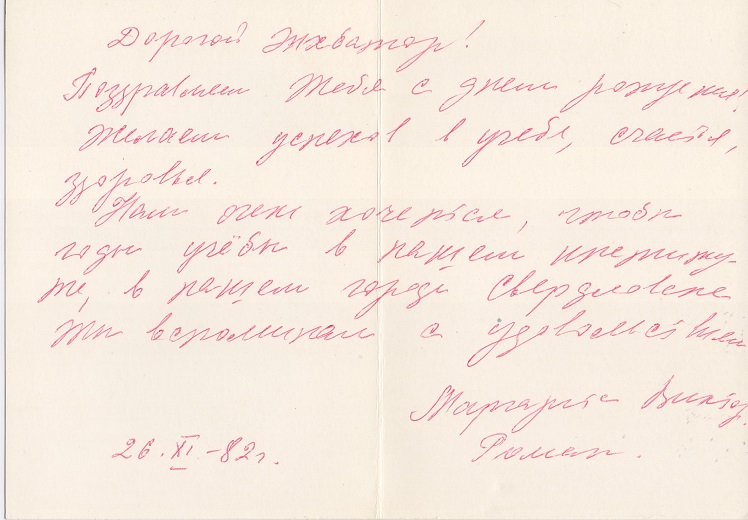 Дорогой Экватор!
Поздравляем Тебя с днем рождения!
Желаем успехов в учебе, счастья,
здоровья.
Нам очень хочется, чтобы
годы учёбы в нашем институ-
те, в нашем городе Свердловске
Ты вспоминал с удовольствием
Маргарита Виктор.
Роман.
26.XI-82г.